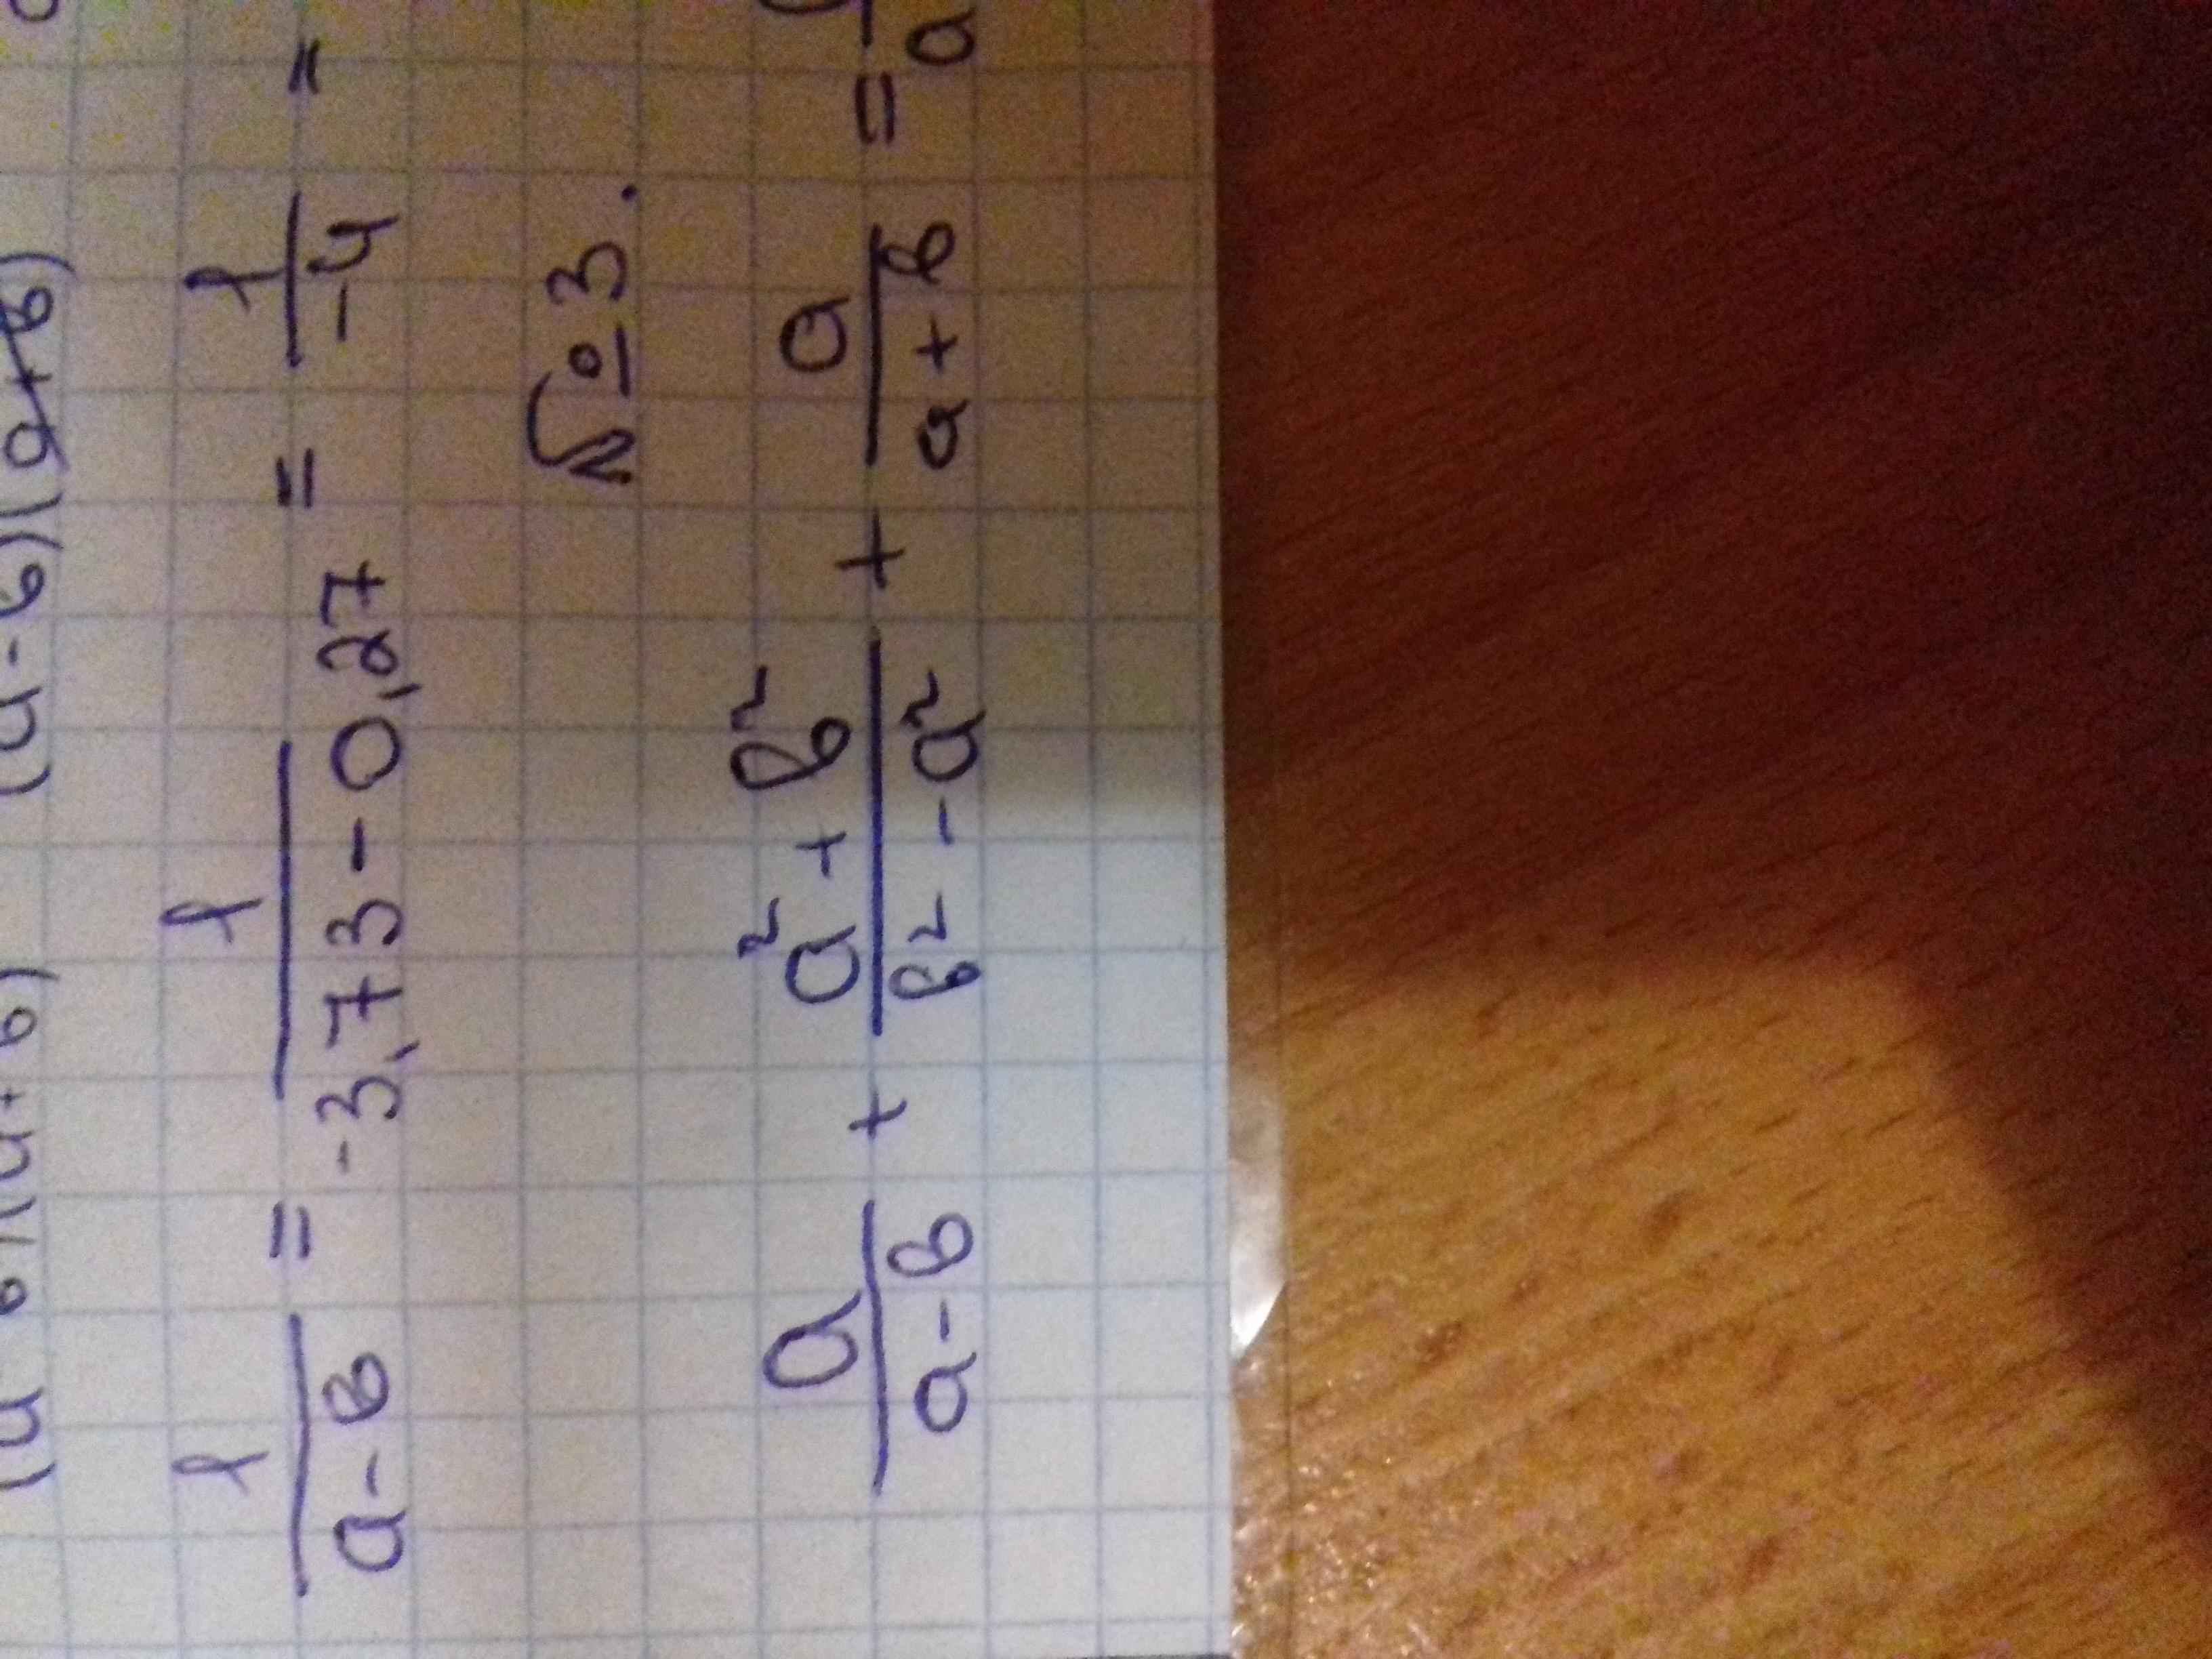 (a-b)(a+b)
1/(a-в) = 1/(-3,73-0,27) = 1/(-4) =
№3.
a/(a-b) + (a²+b²)/(b²-a²) + a/(a+b) =